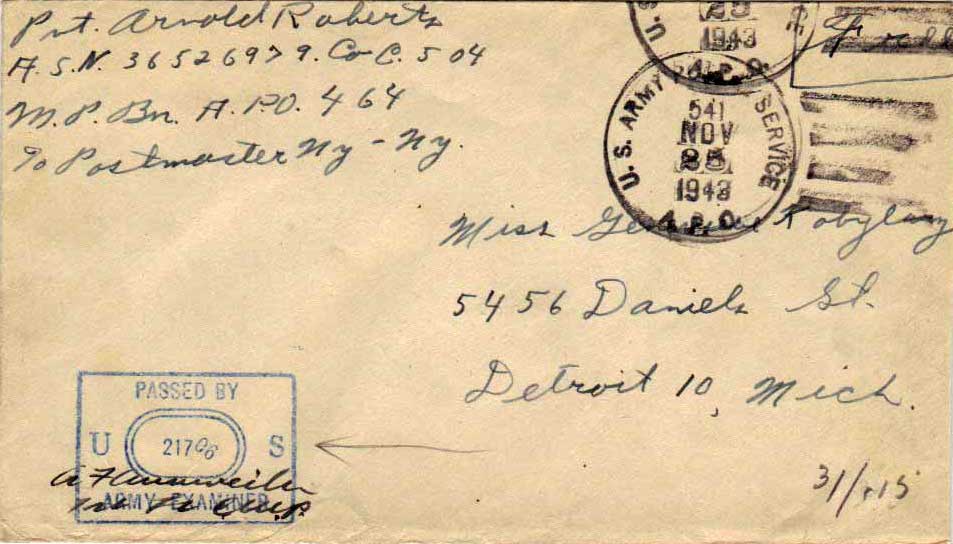 Pvt. Arnold Roberts
A.S.N. 36526979. Co-C. 504
M.P. Bn. A.P.O. 464
c/o Postmaster Ny-Ny.
U.S.
25
1943
A.P.O.
Free
U.S. ARMY POSTAL SERVICE
541
NOV
25
1943
A.P.O.
Miss
5456 Daniels St.
Detroit 10, Mich.
PASSED BY
U 217 S
ARMY EXAMINER